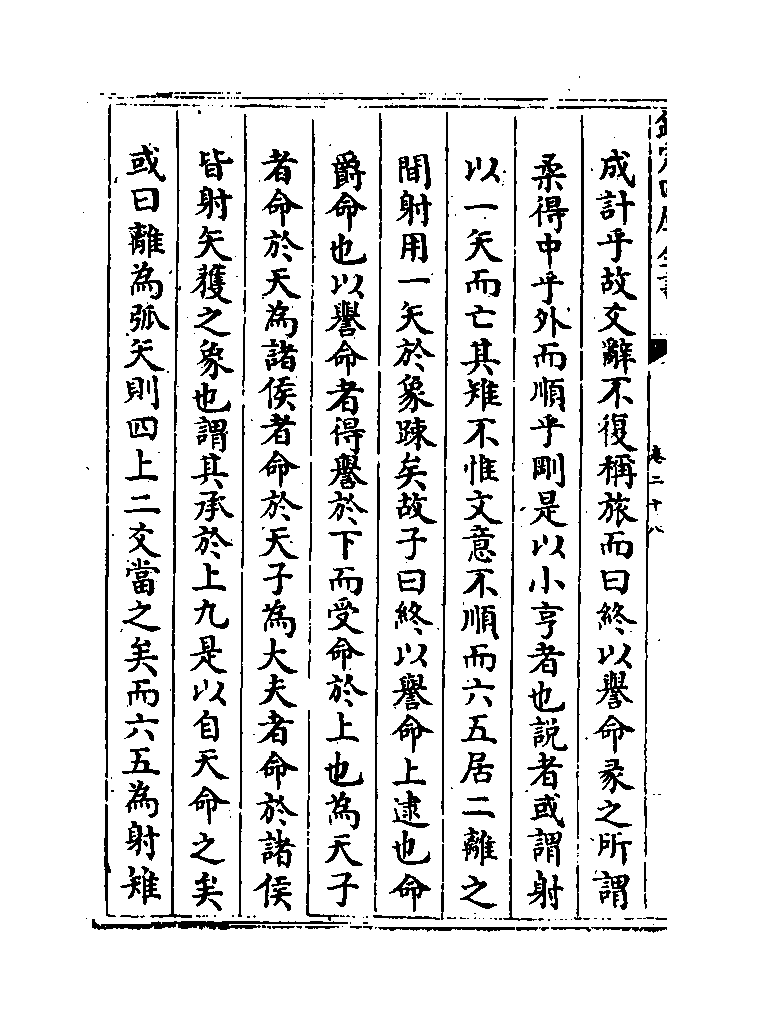 欽定四庫全書
卷二十八
成計乎故爻辭不復稱旅而曰終以譽命彖之所謂
柔得中乎外而順乎剛是以小亨者也説者或謂射
以一矢而亡其雉不惟文意不順而六五居二離之
間射用一矢於象踈矣故子曰終以譽命上逮也命
爵命也以譽命者得譽於下而受命於上也為天子
者命於天為諸侯者命於天子為大夫者命於諸侯
皆射矢獲之象也謂其承於上九是以自天命之矣
或曰離為弧矢則四上二爻當之矣而六五為射雉